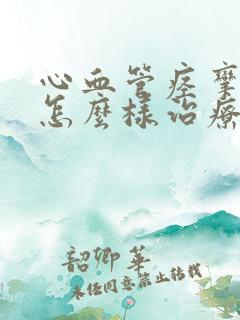 心血管痉挛
怎麽樣治療
韶卿華
未经同意禁止转载